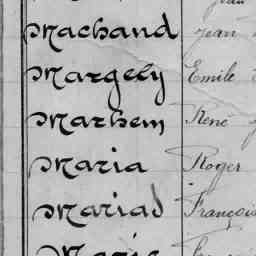 Machand Jean
Margely Emile
Marhem René
Maria Roger
Mariad François
Marie